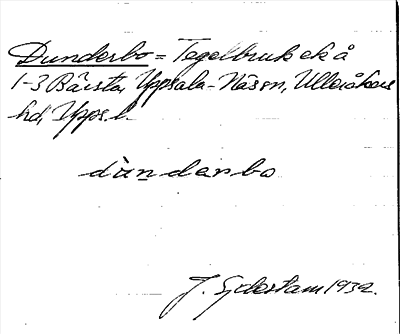 Dunderbo = Tegelbruk ek å
1-3 Bärsta, Uppsala-Näs sn, Ulleråkers
hd, Upps. l.
dùndarbo
J. Sjderstam 1932.